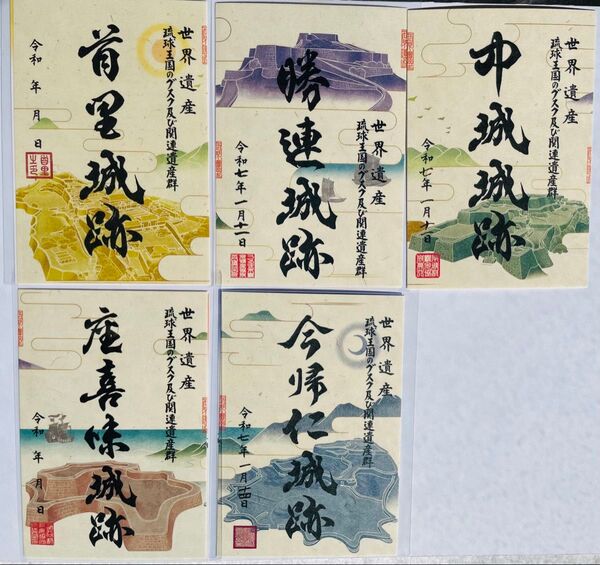 世界遺産
琉球王国のグスク及び関連遺産群
首里城跡
令和 年 月 日
世界遺産
琉球王国のグスク及び関連遺産群
勝連城跡
令和七年 一月十二日
世界遺産
琉球王国のグスク及び関連遺産群
中城城跡
令和七年 一月十日
世界遺産
琉球王国のグスク及び関連遺産群
座喜味城跡
令和 年 月 日
世界遺産
琉球王国のグスク及び関連遺産群
今帰仁城跡
令和七年 一月十四日